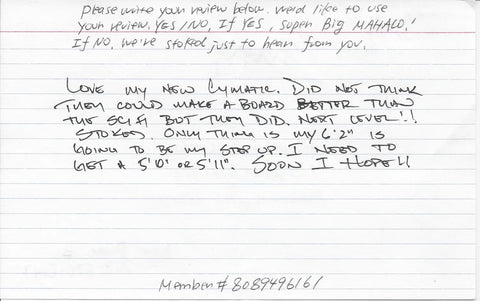 Please write your review below. We'd like to use
your review. YES/NO. If YES, super Big MAHALO!
If NO, we're stoked just to hear from you.
LOVE MY NEW CYMATIC. DID NOT THINK
THEY COULD MAKE A BOARD BETTER THAN
THE SCI FI BUT THEY DID. NEXT LEVEL!!
STOKED. ONLY THING IS MY 6'2" IS
GOING TO BE MY STEP UP. I NEED TO
GET A 5'10" OR 5'11". SOON I HOPE!!
Member# 8089496161